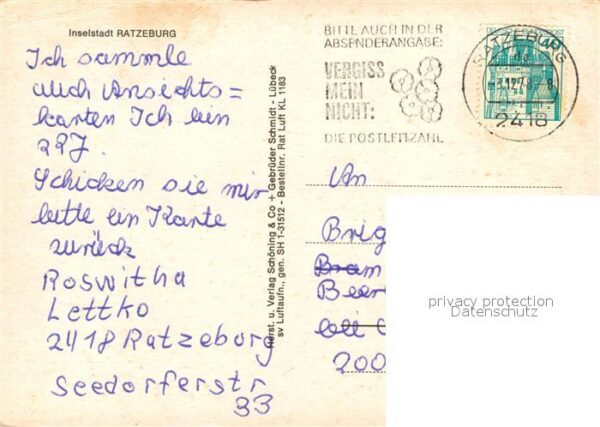 Inselstadt RATZEBURG
Ich sammle
auch Ansichts=
karten Ich bin
22J.
Schicken sie mir
bitte ein Karte
zurück
Roswitha
Lettko
2418 Ratzeburg
Seedorferstr
33
Herst. u. Verlag Schöning & Co + Gebrüder Schmidt - Lübeck
sv Luftaufn., gen. SH 1-31512 - Bestellnr. Rat Luft KL 1183
BITTE AUCH IN DER
ABSENDERANGABE:
VERGISS
MEIN
NICHT:
DIE POSTLEITZAHL
RATZEBURG
2418
An
Brig
Bram
Beer
bei
200
privacy protection
Datenschutz